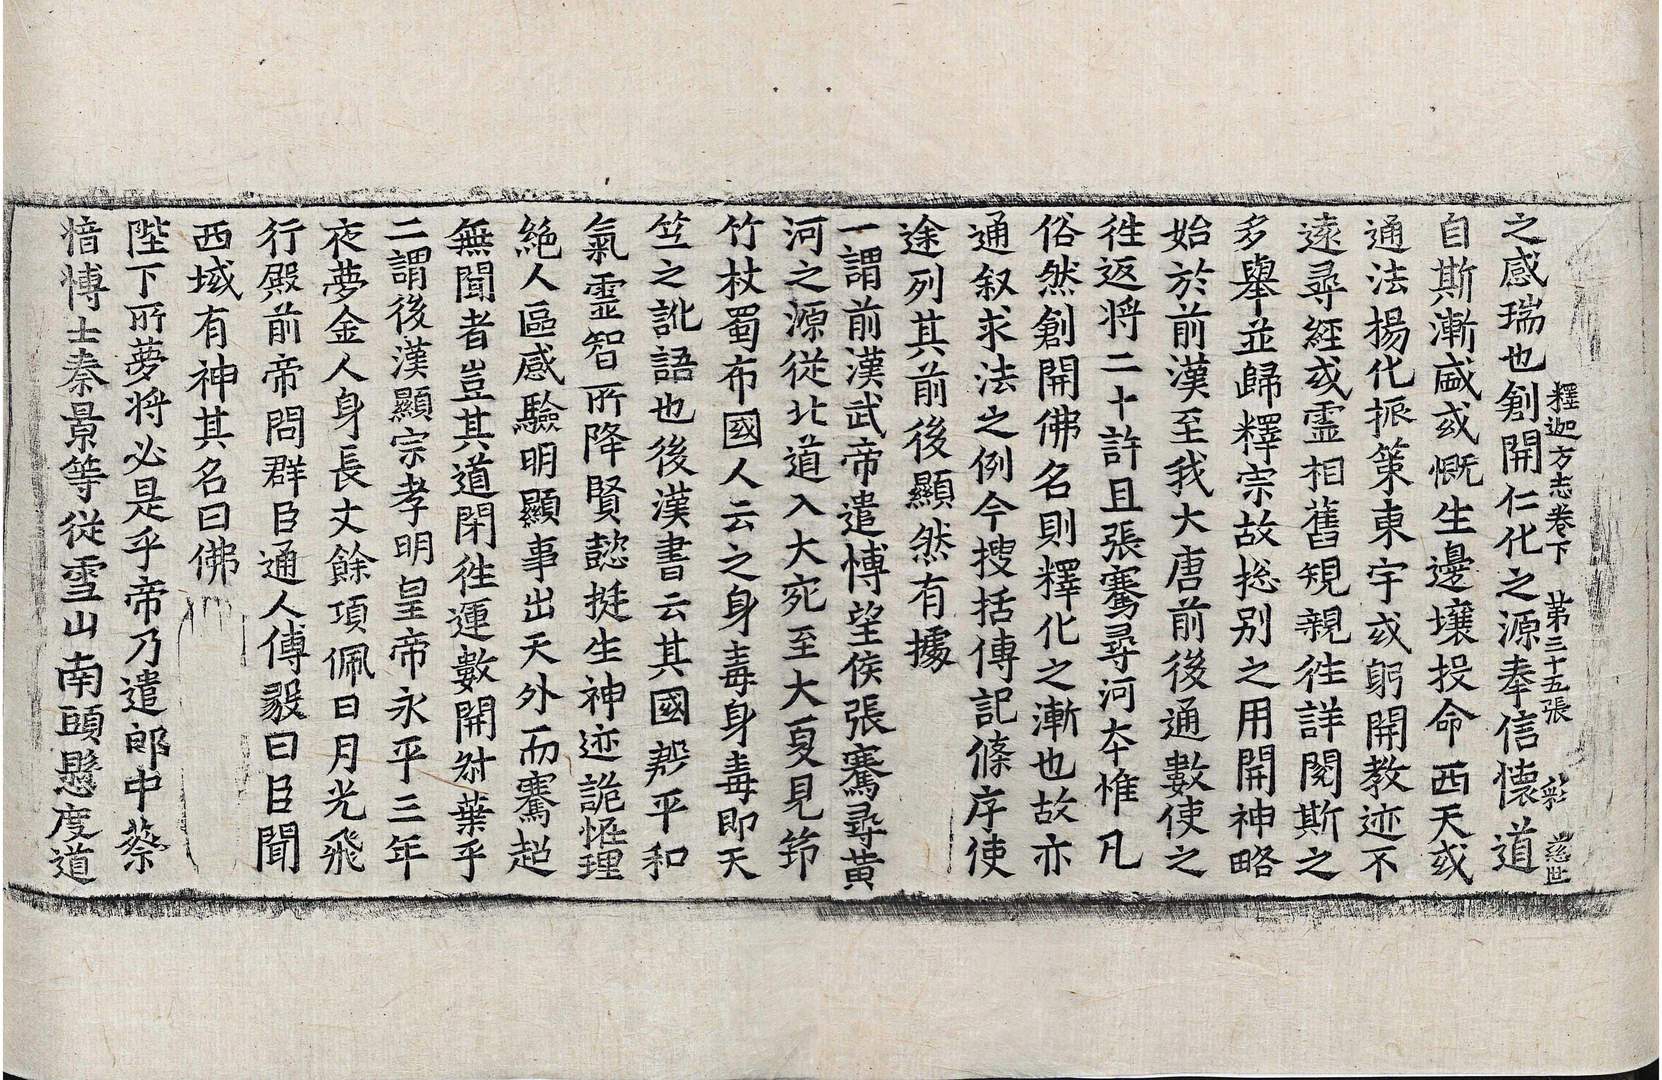 釋迦方志卷下 第三十五張 㢡 慈世
之感瑞也創開仁化之源奉信懷道
自斯漸盛或慨生邊壤投命西天或
通法揚化振策東宇或躬開教迹不
遠尋經或靈相舊規親徃詳閱斯之
多舉並歸釋宗故捴別之用開神略
始於前漢至我大唐前後通數使之
徃返將二十許且張騫尋河夲惟凡
俗然創開佛名則釋化之漸也故亦
通叙求法之例今搜括傳記條序使
途列其前後顯然有據
一謂前漢武帝遣愽望侯張騫尋黃
河之源從北道入大宛至大夏見筇
竹杖蜀布國人云之身毒身毒即天
竺之訛語也後漢書云其國殷平和
氣靈智所降賢懿挺生神迹詭恠理
絕人區感驗明顯事出天外而騫超
無聞者豈其道閉徃運數開尗葉乎
二謂後漢顯宗孝明皇帝永平三年
夜夢金人身長丈餘項佩日月光飛
行殿前帝問群臣通人傅毅曰臣聞
西域有神其名曰佛
陛下所夢將必是乎帝乃遣郎中蔡
愔愽士秦景等從雪山南頭懸度道